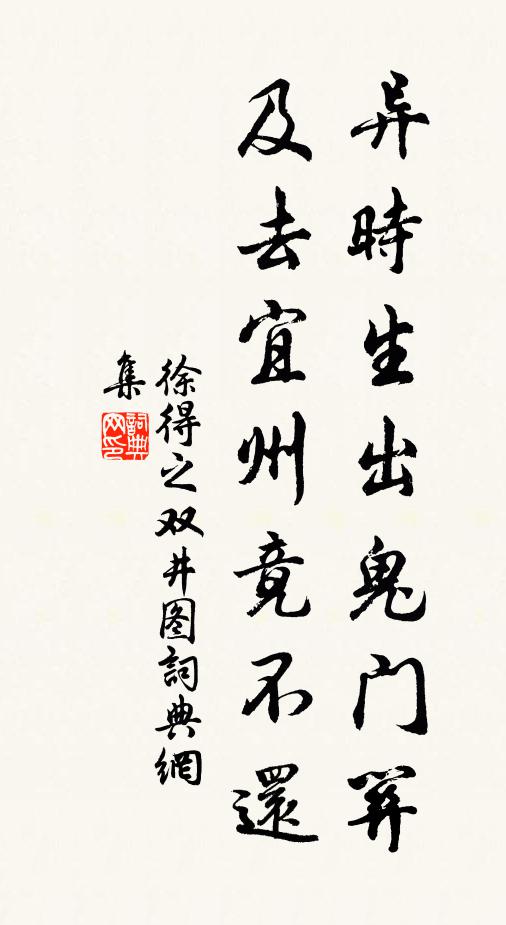 异時生出鬼門關
及去宜州竟不還
徐得之双井图詞典網
集
詞典网印